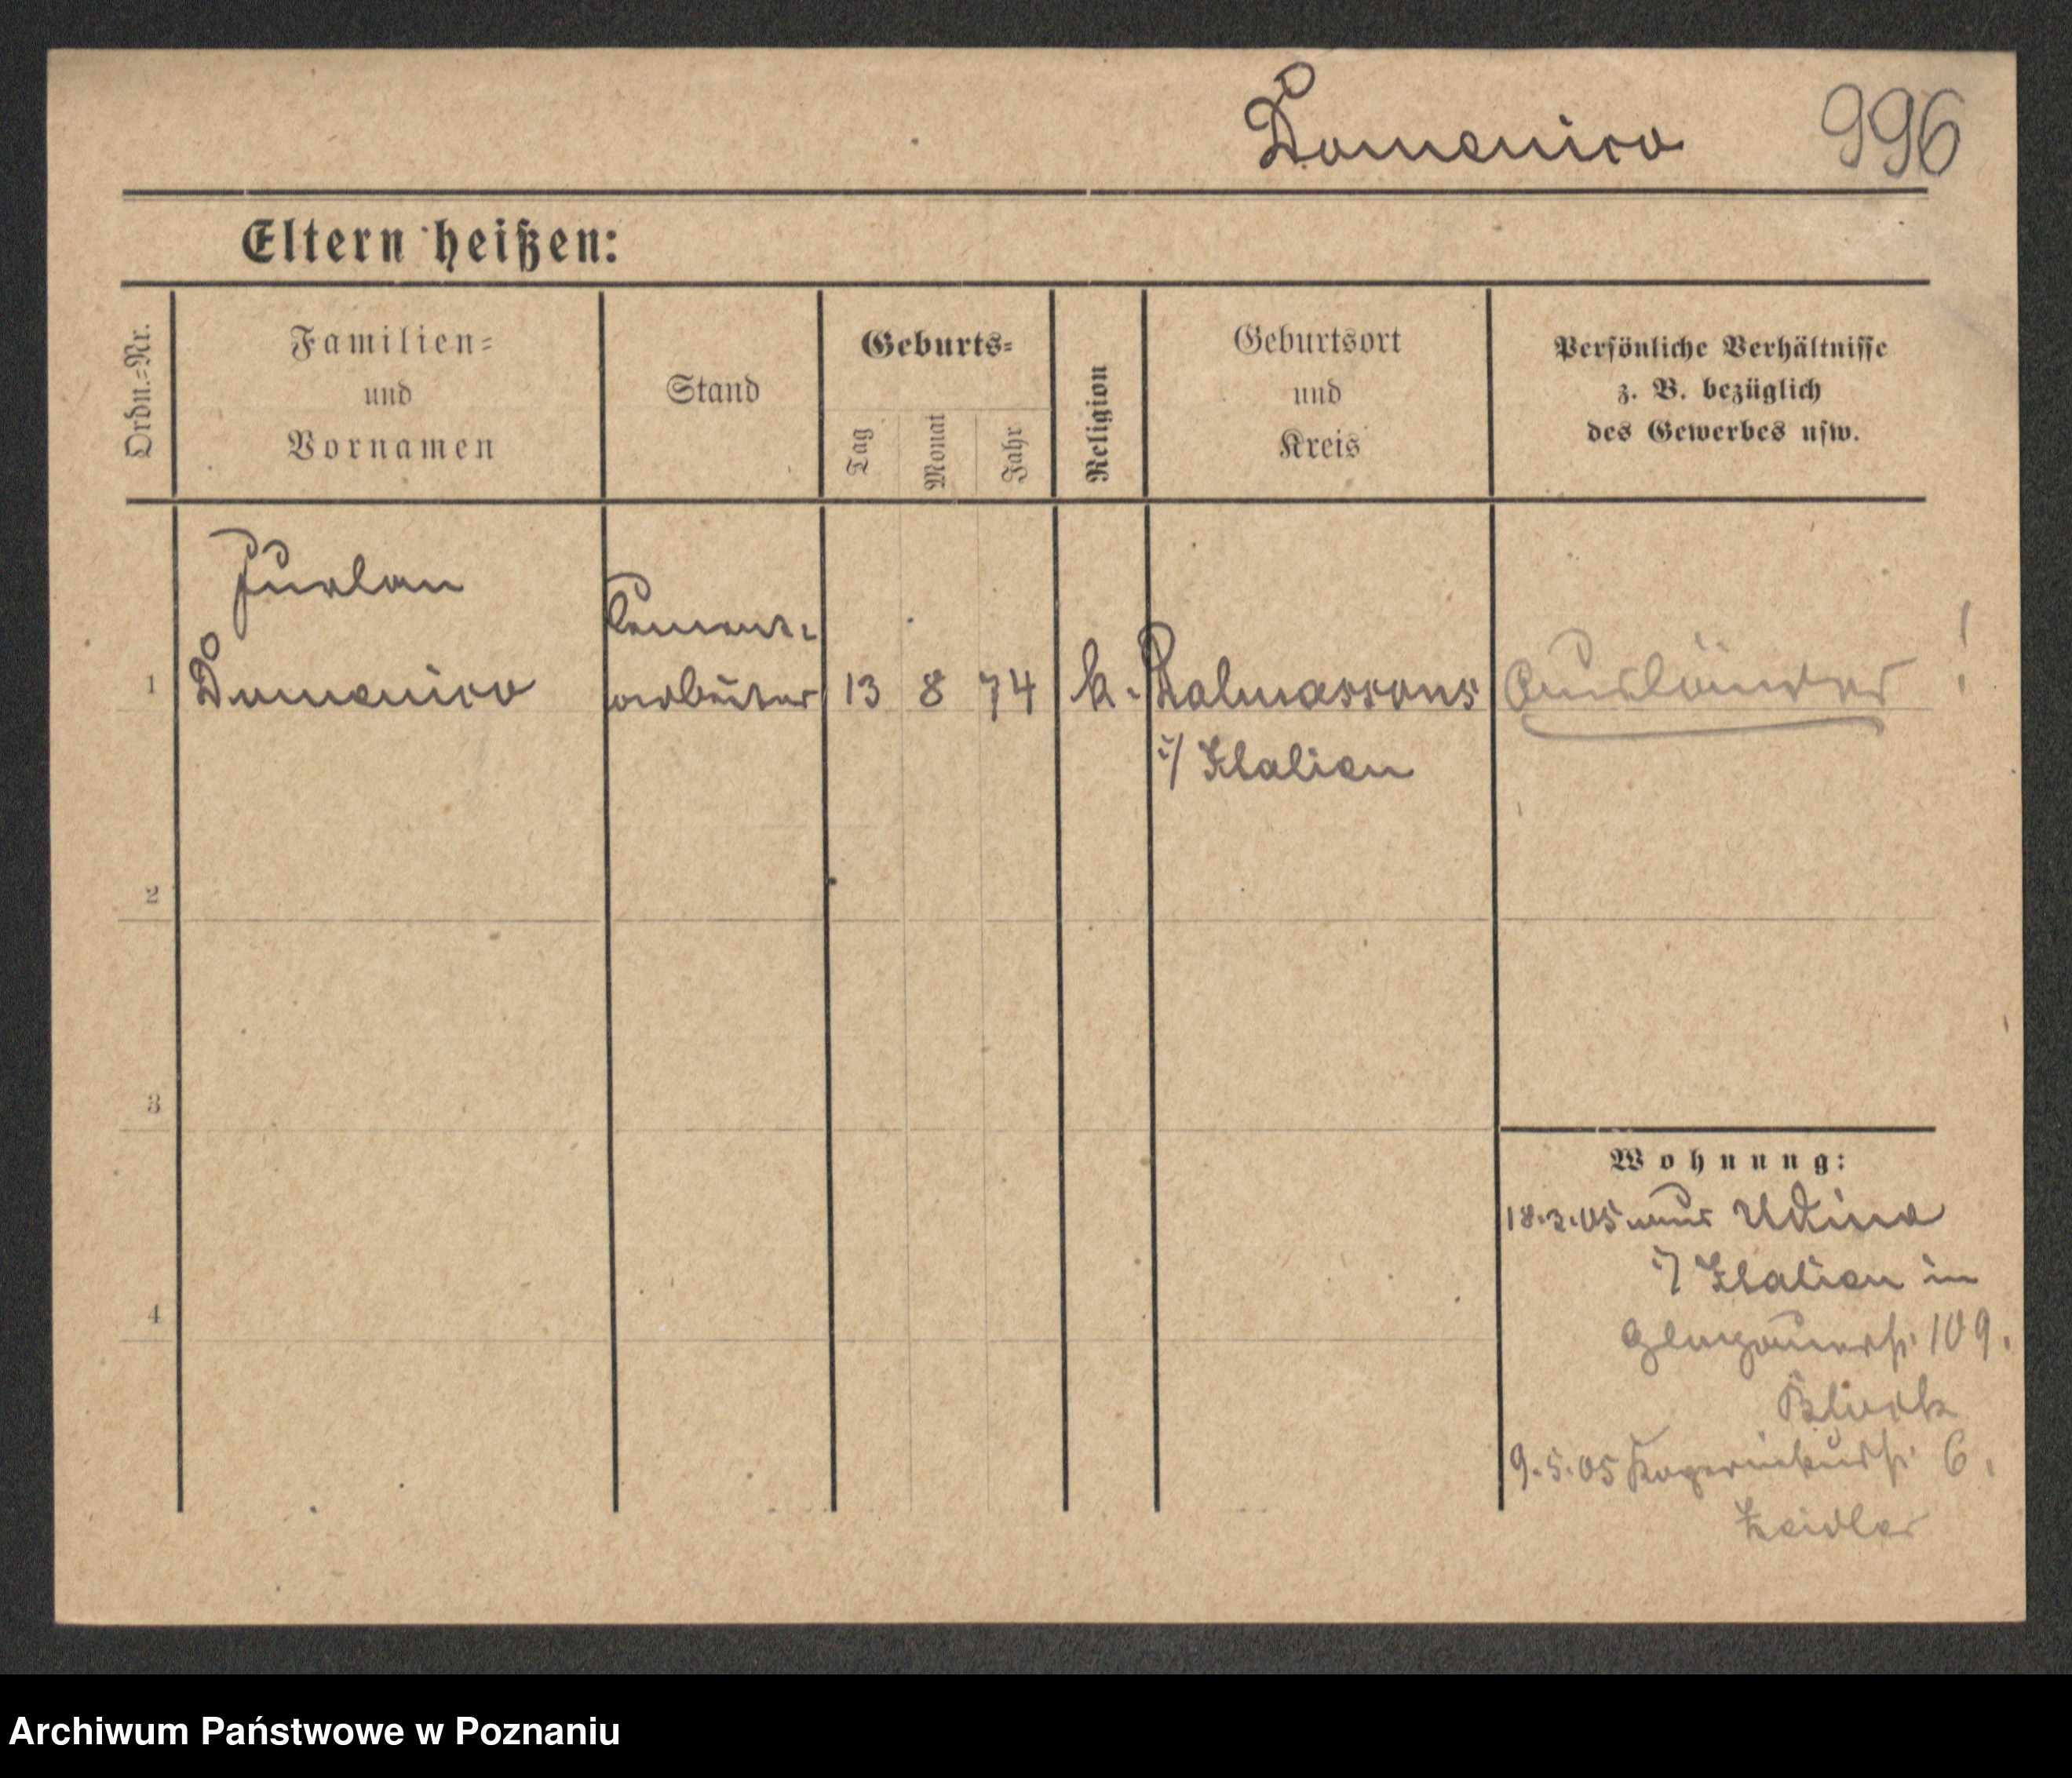 Domenico 996
Eltern heißen:
Ordn.=Nr.
Familien=
und
Vornamen
Stand
Geburts=
Tag
Monat
Jahr
Religion
Geburtsort
und
Kreis
Persönliche Verhältnisse
z. B. bezüglich
des Gewerbes usw.
Furlan
Cement-
1 Domenico arbeiter 13 8 74 k. Talmassons Ausländer !
i/ Italien
2
3
4
Wohnung:
18.3.05 aus Udine
i/ Italien in
Glogauerstr. 109.
9.5.05 6.
Zeidler
Archiwum Państwowe w Poznaniu